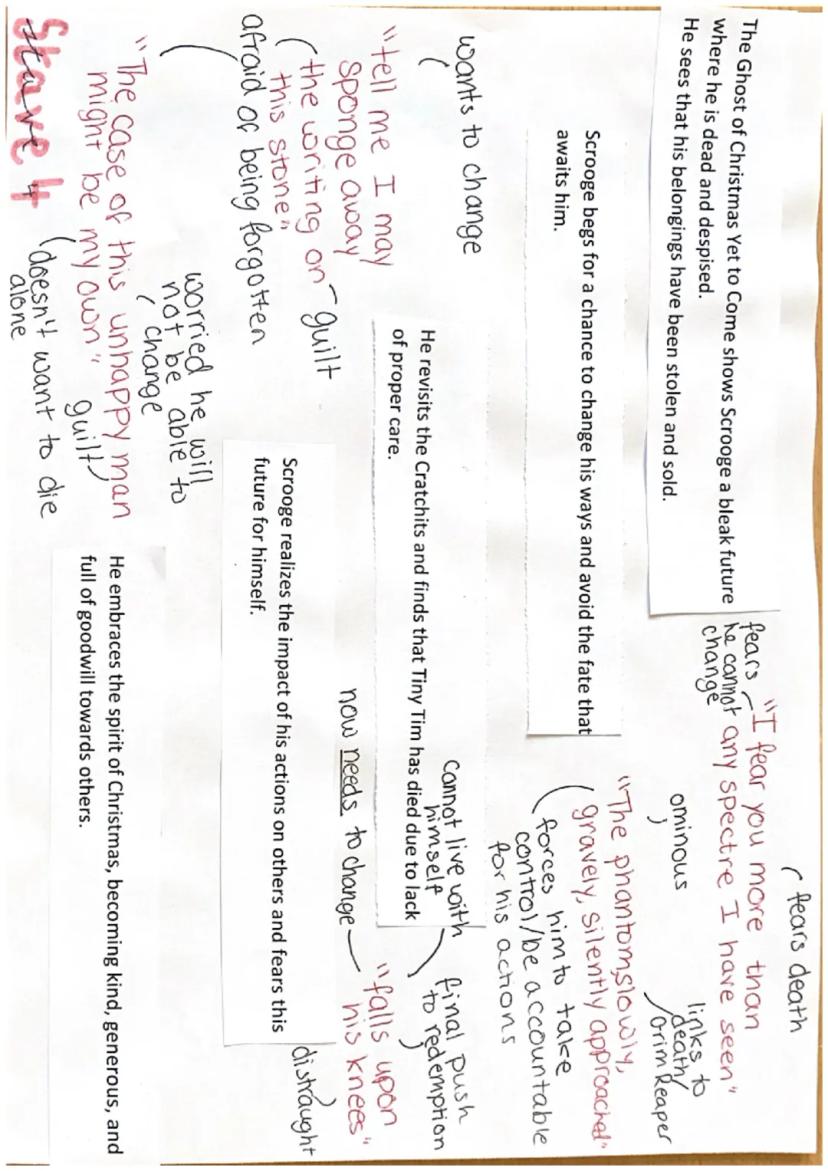 Stave 4
The Ghost of Christmas Yet to Come shows Scrooge a bleak future
where he is dead and despised.
He sees that his belongings have been stolen and sold.
fears death
"I fear you more than
any spectre I have seen"
fears
he cannot
change
ominous
links to
death/
Grim Reaper
Scrooge begs for a chance to change his ways and avoid the fate that
awaits him.
"The phantom slowly,
gravely, silently approached"
forces him to take
control/be accountable
for his actions
wants to change
"tell me I may
sponge away
the writing on
this stone"
guilt
afraid of being forgotten
He revisits the Cratchits and finds that Tiny Tim has died due to lack
of proper care.
Cannot live with
himself
final push
to redemption
now needs to change
"falls upon
his knees"
distraught
Scrooge realizes the impact of his actions on others and fears this
future for himself.
worried he will
not be able to
change
"The case of this unhappy man
might be my own"
guilt
doesn't want to die
alone
He embraces the spirit of Christmas, becoming kind, generous, and
full of goodwill towards others.